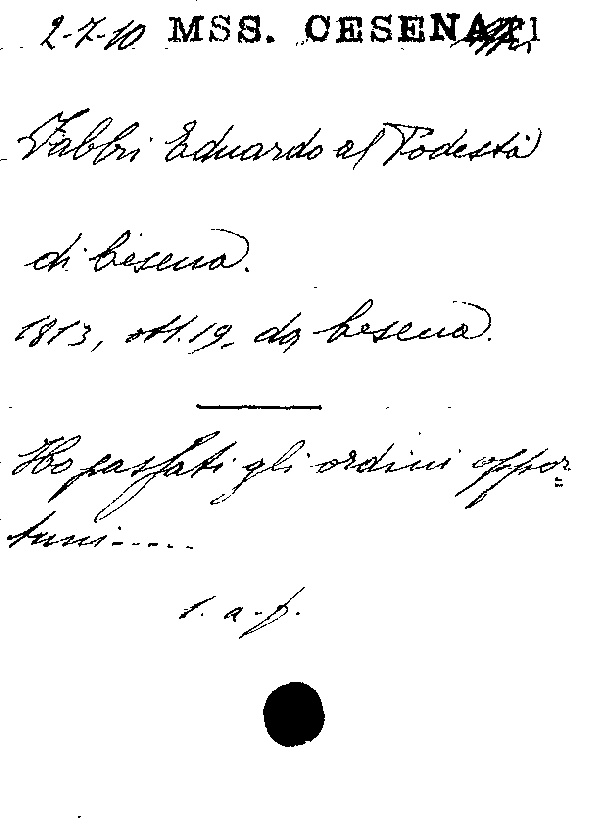 2-7-10 MSS. CESENATI
Fabbri Eduardo al Podestà
di Cesena.
1813, ott. 19, da Cesena.
Ho passati gli ordini oppor=
tuni-----
l. a. f.